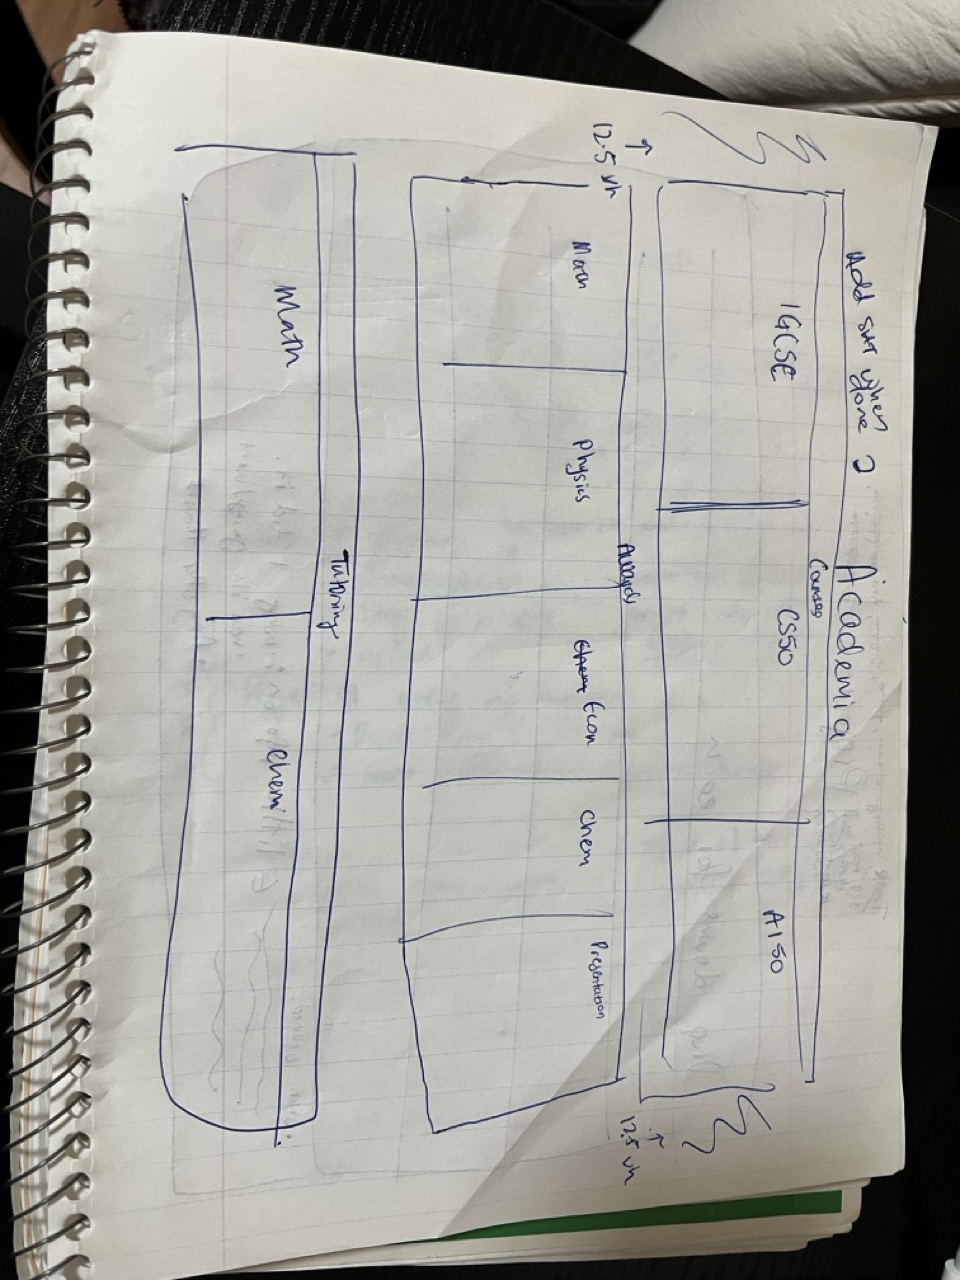 Add SAT when
done 2
Academia
Courses
IGCSE CS50 AI50
12.5 vh 12.5 vh
Awards
Math Physics Chem Econ Chem Presentation
Tutoring
Math Chem